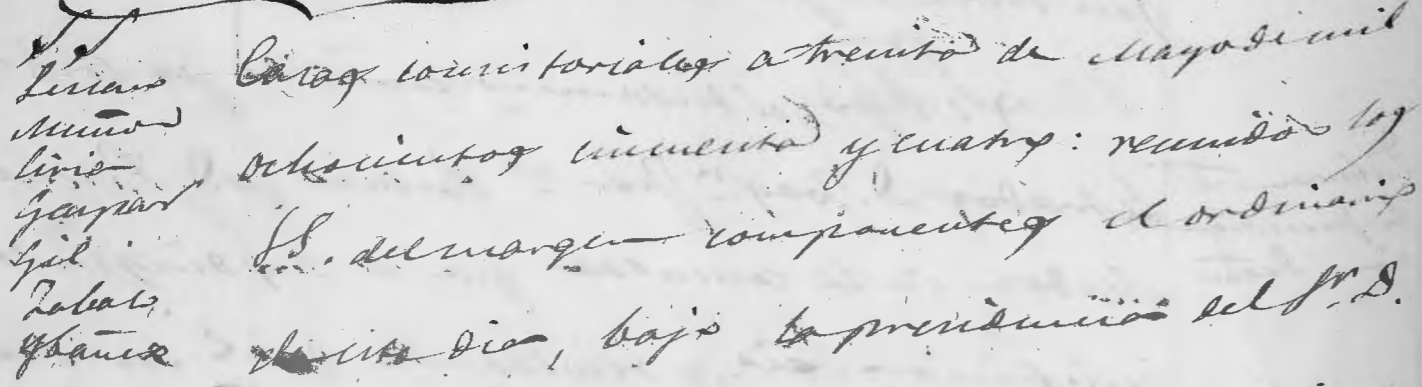 SS
Muñoz
Gaspar
Gil
Zabala
Ybañez
Casas consistoriales a treinta de Mayo de mil
ochocientos cincuenta y cuatro: reunidos los
SS. del margen componentes el ordinario
de este dia, bajo la presidencia del Sr. D.